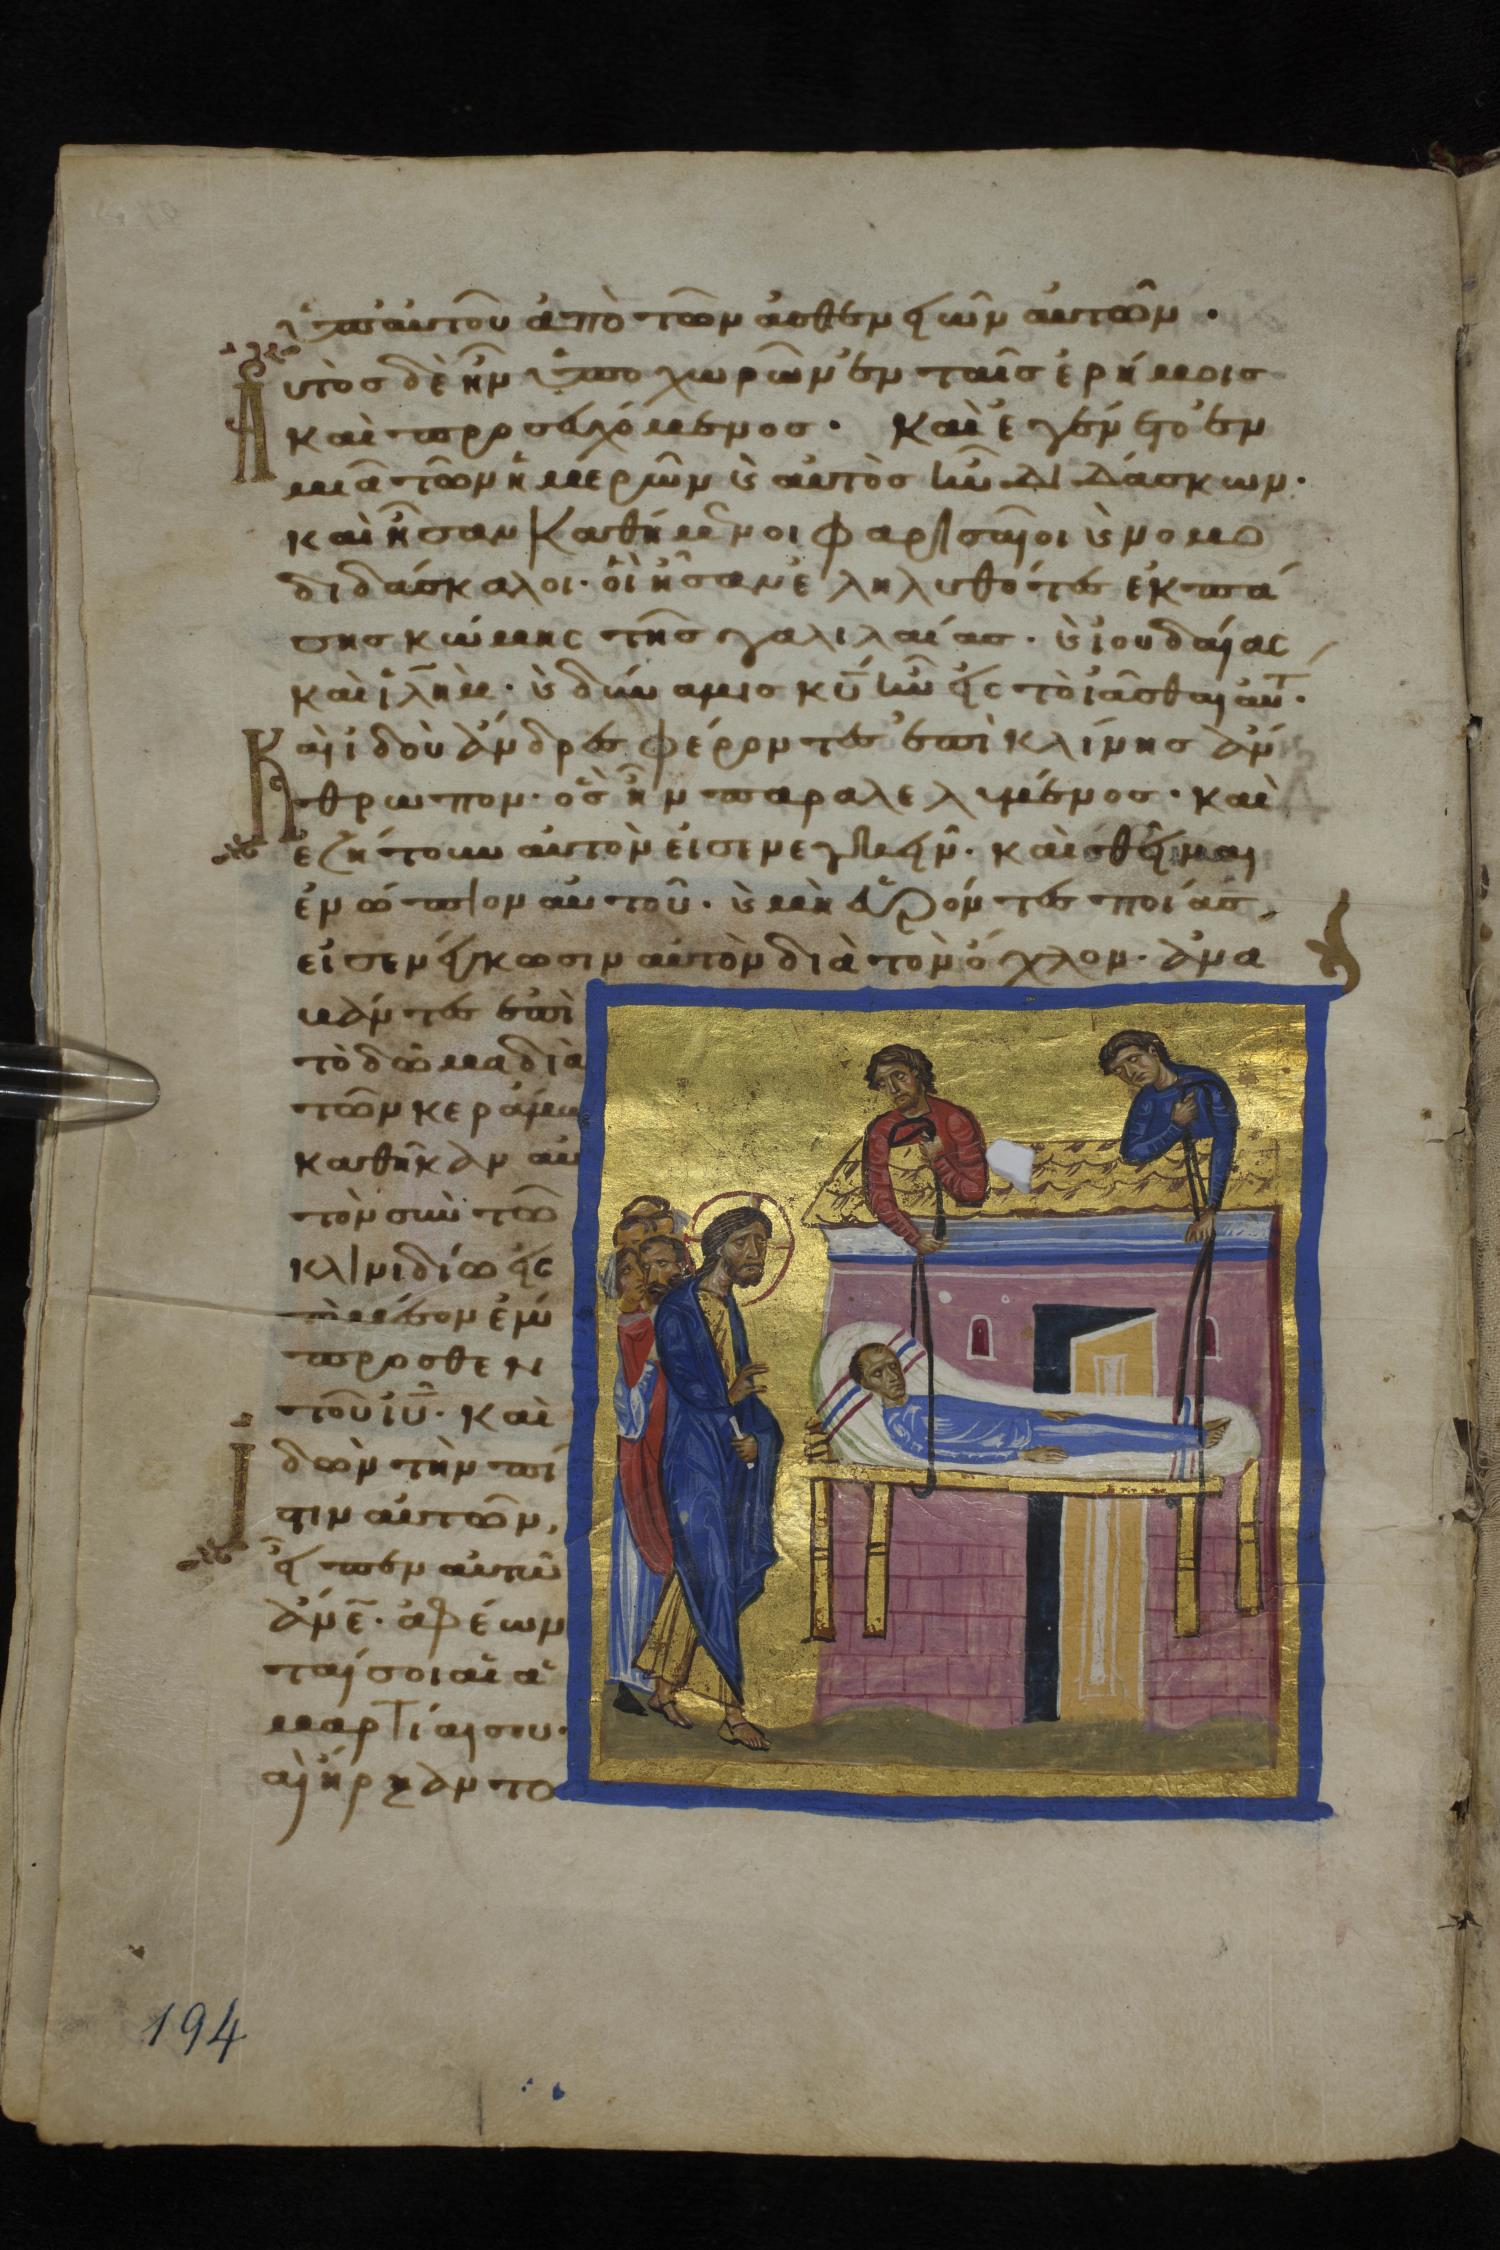 ὑπ αὐτοῦ ἀπὸ τῶν ἀσθενειῶν αὐτῶν ·
Αὐτὸσ δὲ ἦν ὑπο χωρῶν ἐν ταῖσ ἐρήμοισ
καὶ προσευχόμενοσ · Καὶ ἐγένετο ἐν
μιᾶ τῶν ἡμερῶν καὶ αὐτὸσ ἦν διδάσκων ·
καὶ ἦσαν καθήμενοι φαρισαῖοι καὶ νομο
διδάσκαλοι · οἳ ἦσαν ἐληλυθότεσ ἐκ πά
σησ κώμησ τῆσ γαλιλαίασ · καὶ ἰουδαίασ
καὶ ἰλῆμ · καὶ δύναμισ κῦ ἦν εἰσ τὸ ἰᾶσθαι αὐτ ·
Καὶ ἰδοὺ ἄνδρεσ φέροντεσ ἐπὶ κλίνησ ἄν
θρωπον · ὃσ ἦν παραλελυμένοσ · καὶ
ἐζήτουν αὐτὸν εἰσενεγκεῖν · καὶ θεῖναι
ἐνώπιον αὐτοῦ · καὶ μὴ εὑρόντεσ ποίασ
εἰσενέγκωσιν αὐτὸν διὰ τὸν ὄχλον · ἀνα
βάντεσ ἐπὶ
τὸ δῶμα διὰ
τῶν κεράμω
καθῆκαν αὐ
τὸν σὺν τῶ
κλινιδίω εἰσ
τὸ μέσον ἔμ
προσθεν
τοῦ ἰῦ · Καὶ
Ἰδὼν τὴν πί
στιν αὐτῶν,
εἶπεν αὐτῶ
ἄνε · ἀφέων
ταί σοι αἱ ἁ
μαρτίαι σου ·
αὶ ἤρξαντο
194